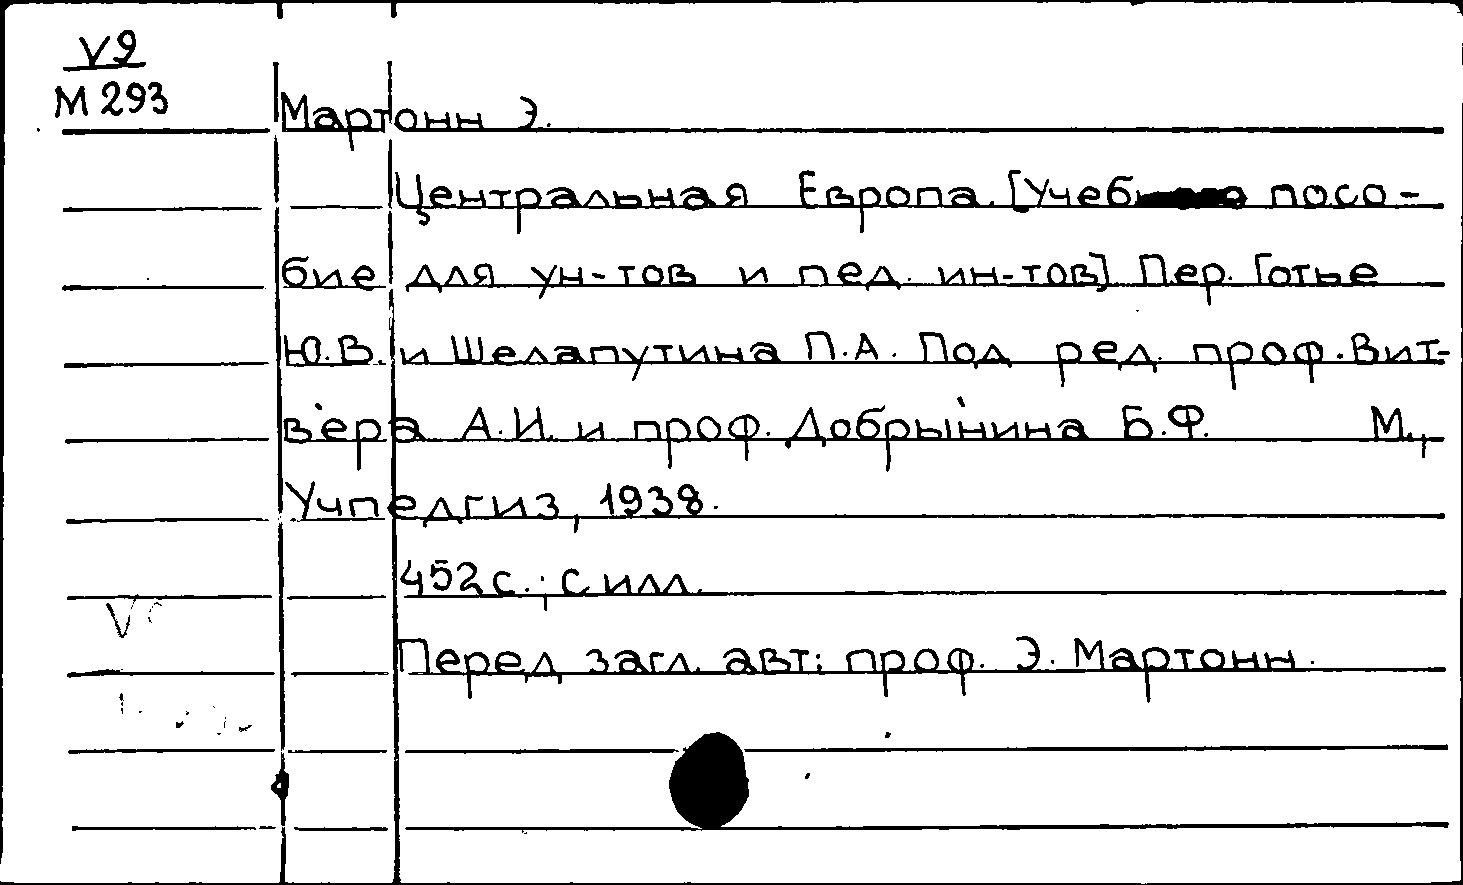 V9
М 293
Мартонн Э.
Центральная Европа. [Учеб посо-
бие для ун-тов и пед. ин-тов] Пер. Готье
Ю.В. и Шелапутина П.А. Под ред. проф. Вит-
вера А.И. и проф. Добрынина Б.Ф. М.,
Учпедгиз, 1938.
452 с.; с илл.
Перед загл. авт: проф. Э. Мартонн.